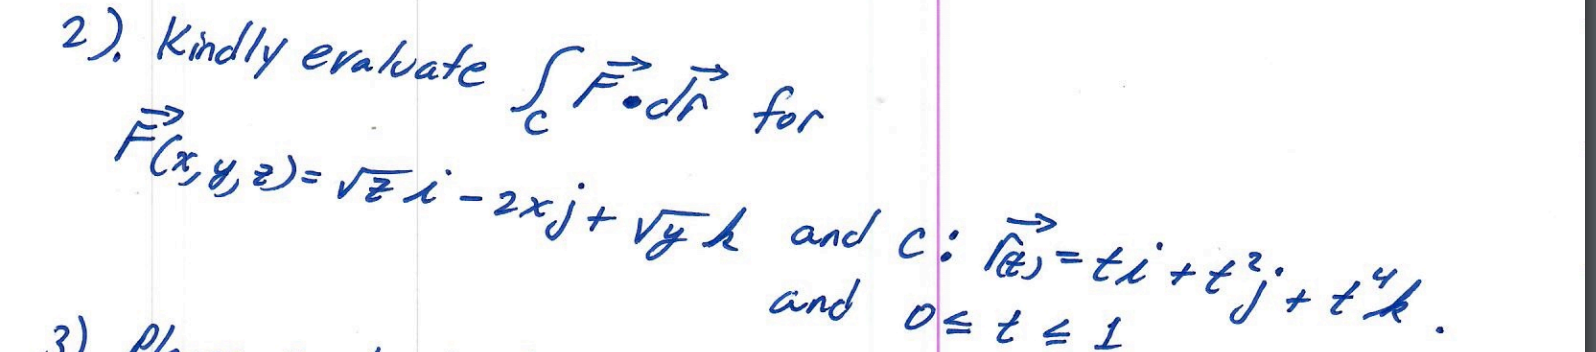 2). Kindly evaluate ∫_C F⃗•dr⃗ for
F⃗(x,y,z)= √z i - 2xj + √y k and C: r⃗(t) = ti + t²j + t⁴k.
and 0 ≤ t ≤ 1
3)